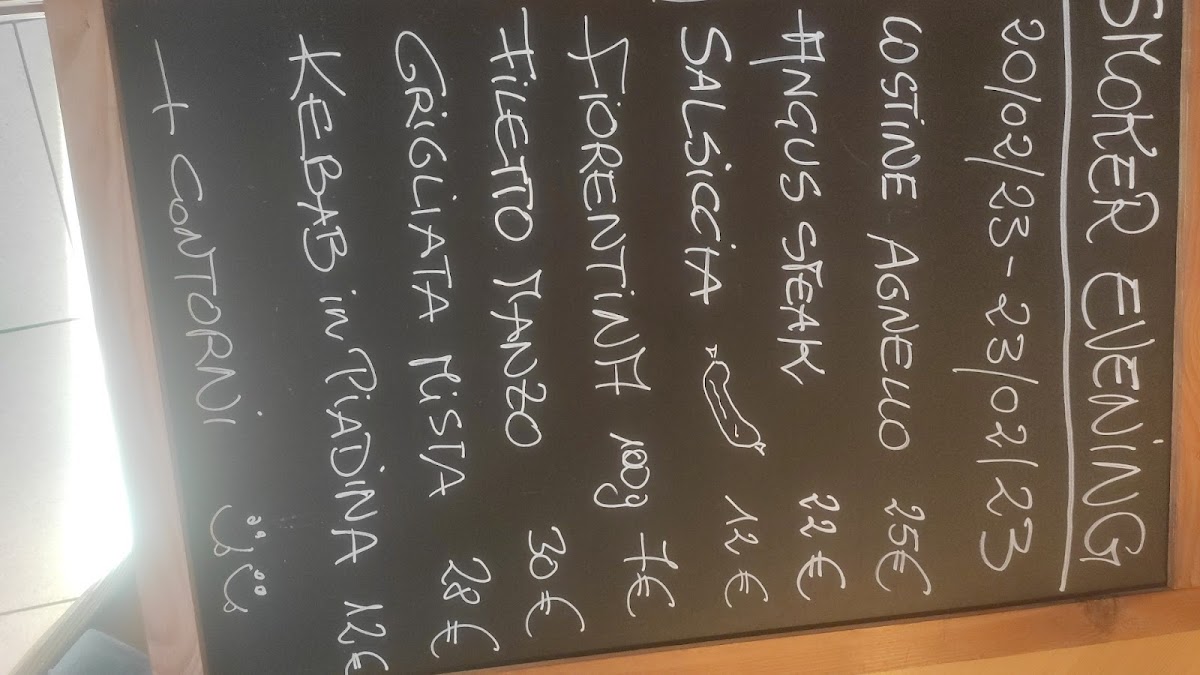 SMOKER EVENING
20/02/23 - 23/02/23
COSTINE AGNELLO 25€
ANGUS STEAK 22€
SALSICCIA 12€
FIORENTINA 100g 7€
FILETTO MANZO 30€
GRIGLIATA MISTA 28€
KEBAB in PIADINA 12€
+ CONTORNI